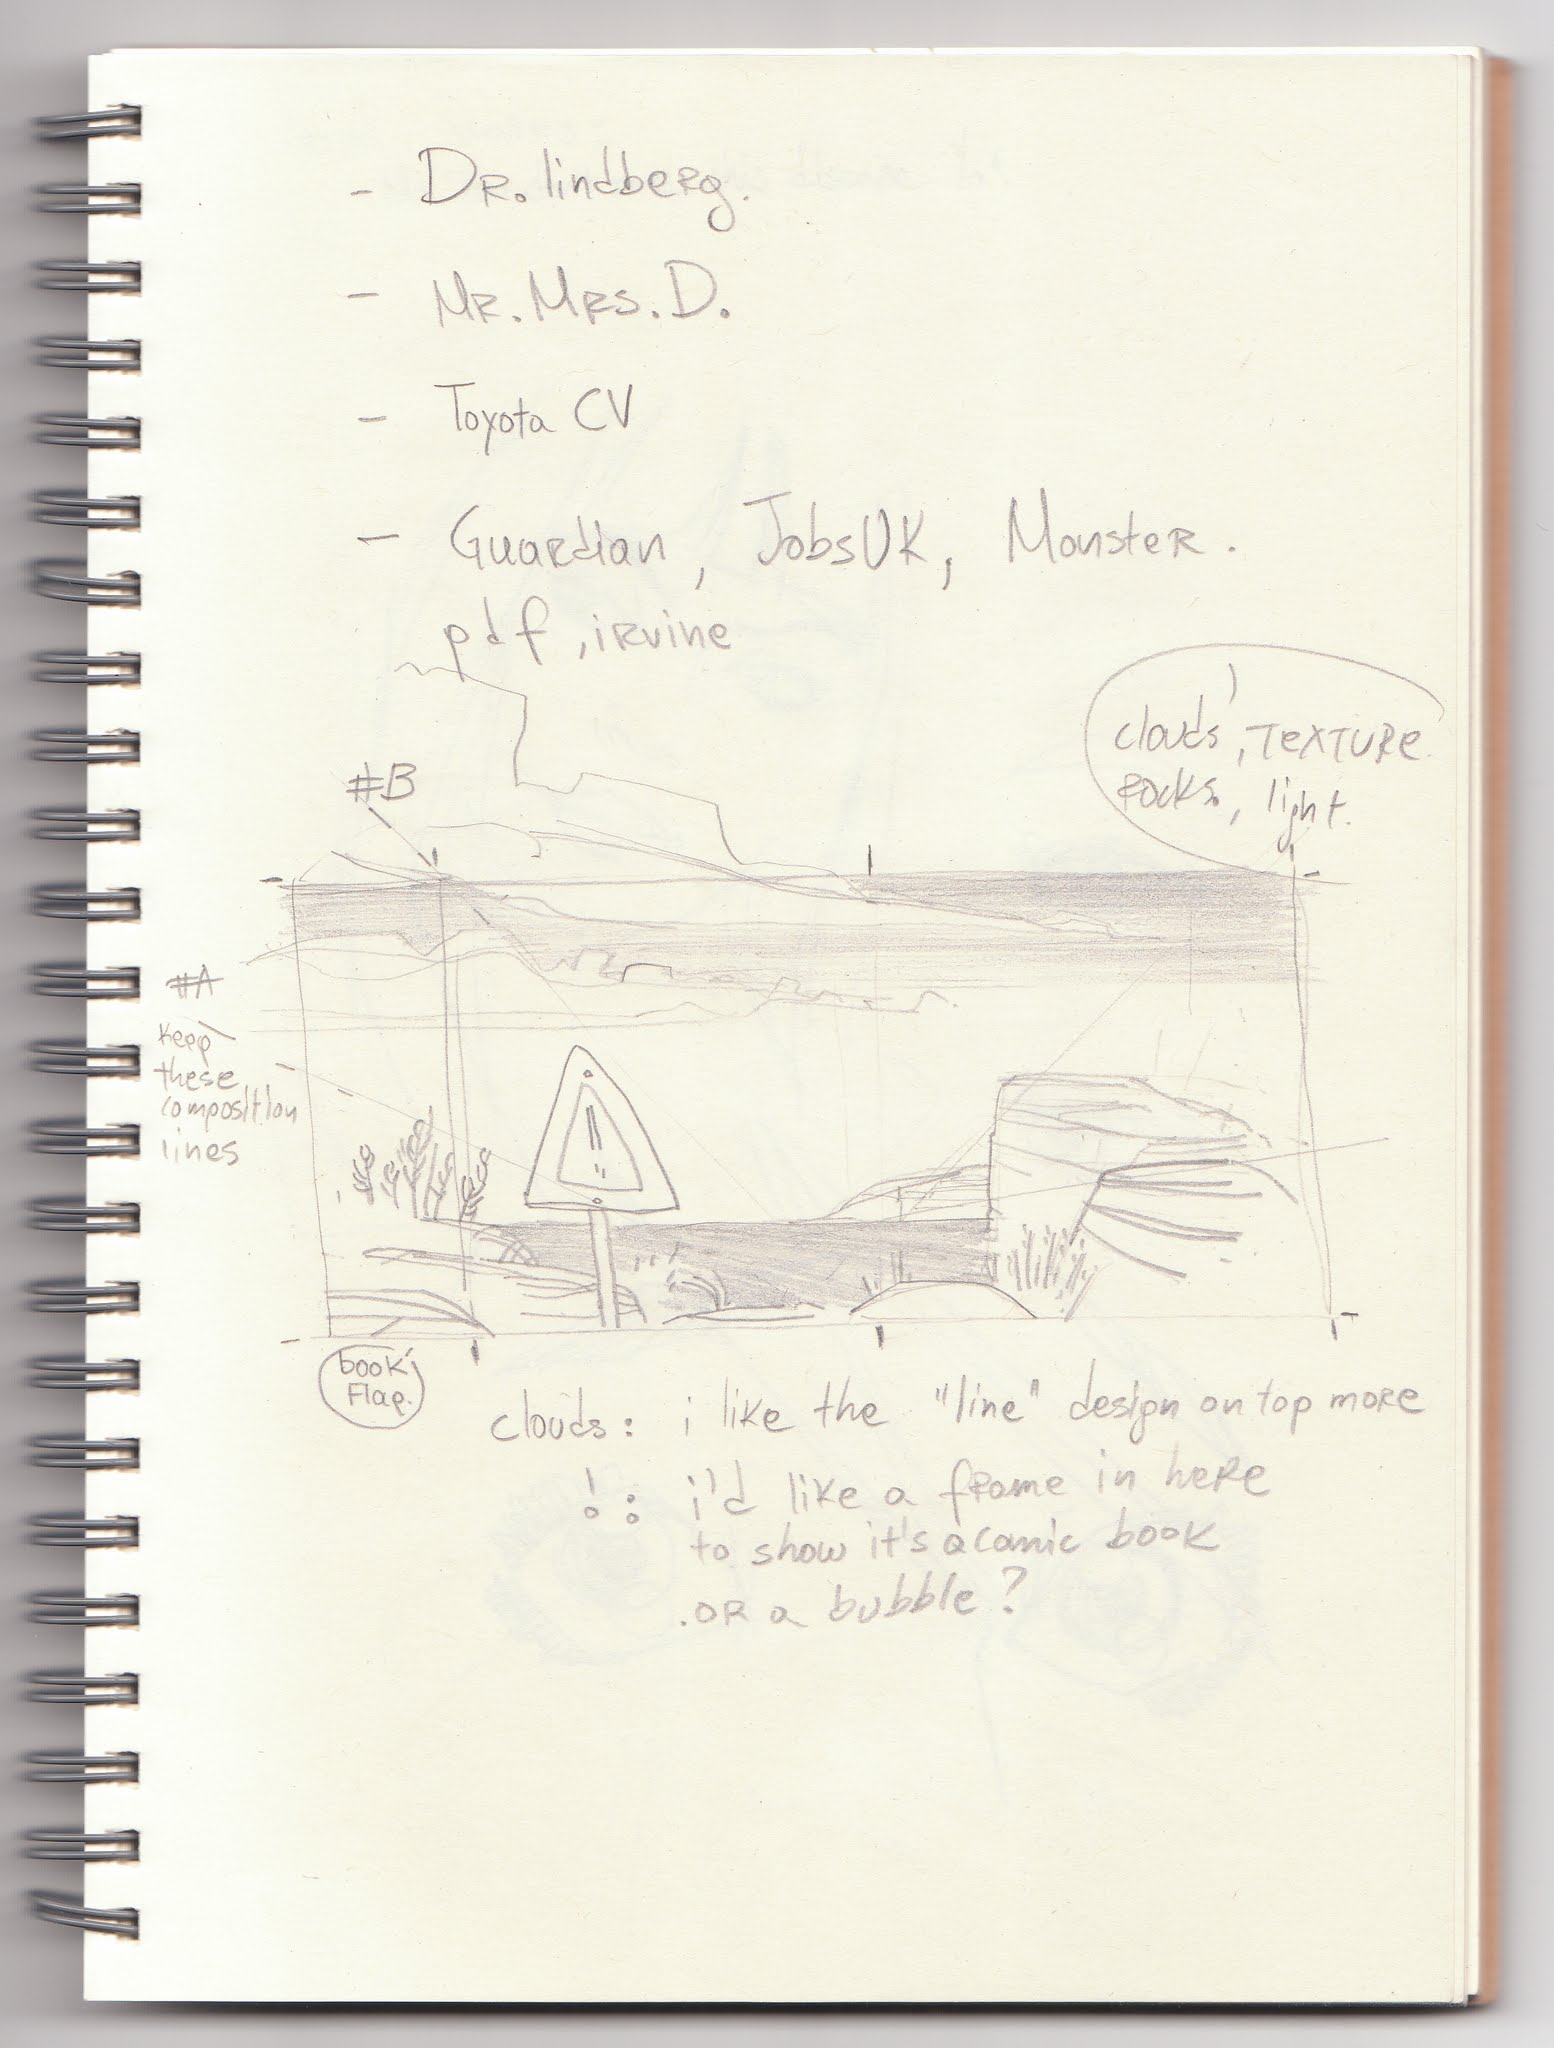 - DR. lindberg.
- MR. MRS. D.
- Toyota CV
- Guardian, JobsUK, Monster.
pdf, irvine
clouds, TEXTURE
Rocks, light.
#B
#A
keep
these
composition
lines
book
Flap.
clouds: i like the "line" design on top more
!: i'd like a frame in here
to show it's a comic book
.OR a bubble?